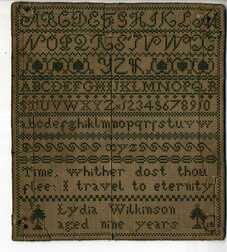 ABCDEFGHIKLM
NOPQRSTVWX
YZ
ABCDEFGHIJKLMNOPQR
STUVWXYZ 12345678910
abcdefghiklmnopqrstuvw
xyz
Time, whither dost thou
flee: I travel to eternity
Lydia Wilkinson
aged nine years